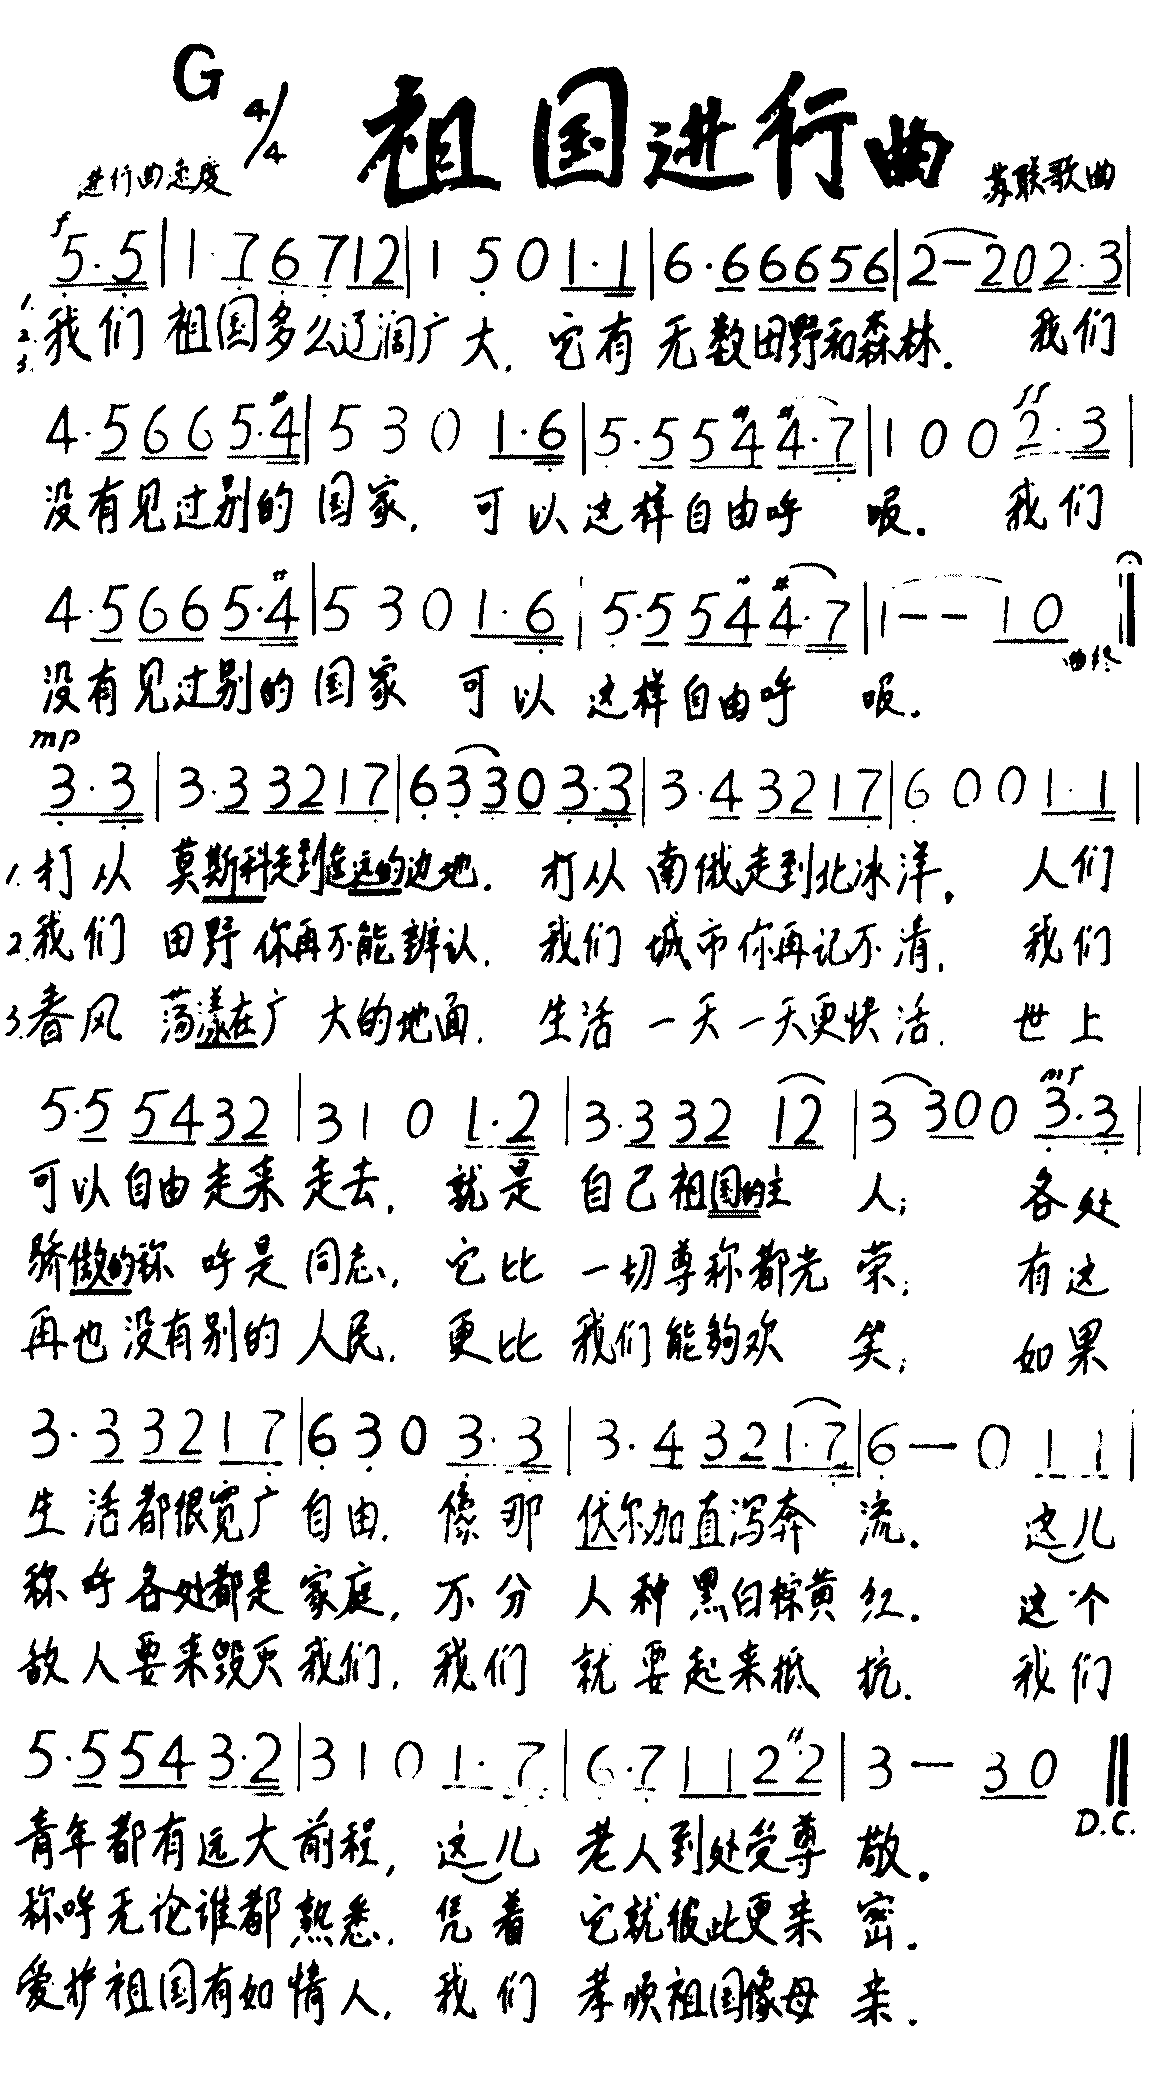 G 4/4 祖国进行曲
进行曲速度 苏联歌曲
f
5·5 | 1·7 6 7 1 2 | 1 5 0 1·1 | 6·6 6 6 5 6 | 2 - 2 0 2·3 |
1. 2. 3. 我们祖国多么辽阔广大. 它有无数田野和森林. 我们
ff
4·5 6 6 5·#4 | 5 3 0 1·6 | 5·5 5 #4 #4·7 | 1 0 0 2·3 |
没有见过别的国家. 可以这样自由呼吸. 我们
4·5 6 6 5·#4 | 5 3 0 1·6 | 5·5 5 #4 #4·7 | 1 - - 1 0 ‖
没有见过别的国家 可以这样自由呼吸. 曲终
mp
3·3 | 3·3 3 2 1 7 | 6 3 3 0 3·3 | 3·4 3 2 1 7 | 6 0 0 1·1 |
1. 打从莫斯科走到遥远的边地. 打从南俄走到北冰洋, 人们
2. 我们田野你再不能辨认. 我们城市你再记不清, 我们
3. 春风荡漾在广大的地面. 生活一天一天更快活. 世上
mf
5·5 5 4 3 2 | 3 1 0 1·2 | 3·3 3 2 1 2 | 3 3 0 0 3·3 |
可以自由走来走去, 就是自己祖国的主人; 各处
骄傲的称呼是同志, 它比一切尊称都光荣; 有这
再也没有别的人民. 更比我们能够欢笑; 如果
3·3 3 2 1 7 | 6 3 0 3·3 | 3·4 3 2 1·7 | 6 - 0 1 1 |
生活都很宽广自由. 像那伏尔加直泻奔流. 这儿
称呼各处都是家庭, 不分人种黑白棕黄红. 这个
敌人要来毁灭我们, 我们就要起来抵抗. 我们
5·5 5 4 3·2 | 3 1 0 1·7 | 6·7 1 1 2 #2 | 3 - 3 0 ‖
D.C.
青年都有远大前程, 这儿老人到处受尊敬.
称呼无论谁都熟悉. 凭着它就彼此更来密.
爱护祖国有如情人, 我们孝顺祖国像母亲.